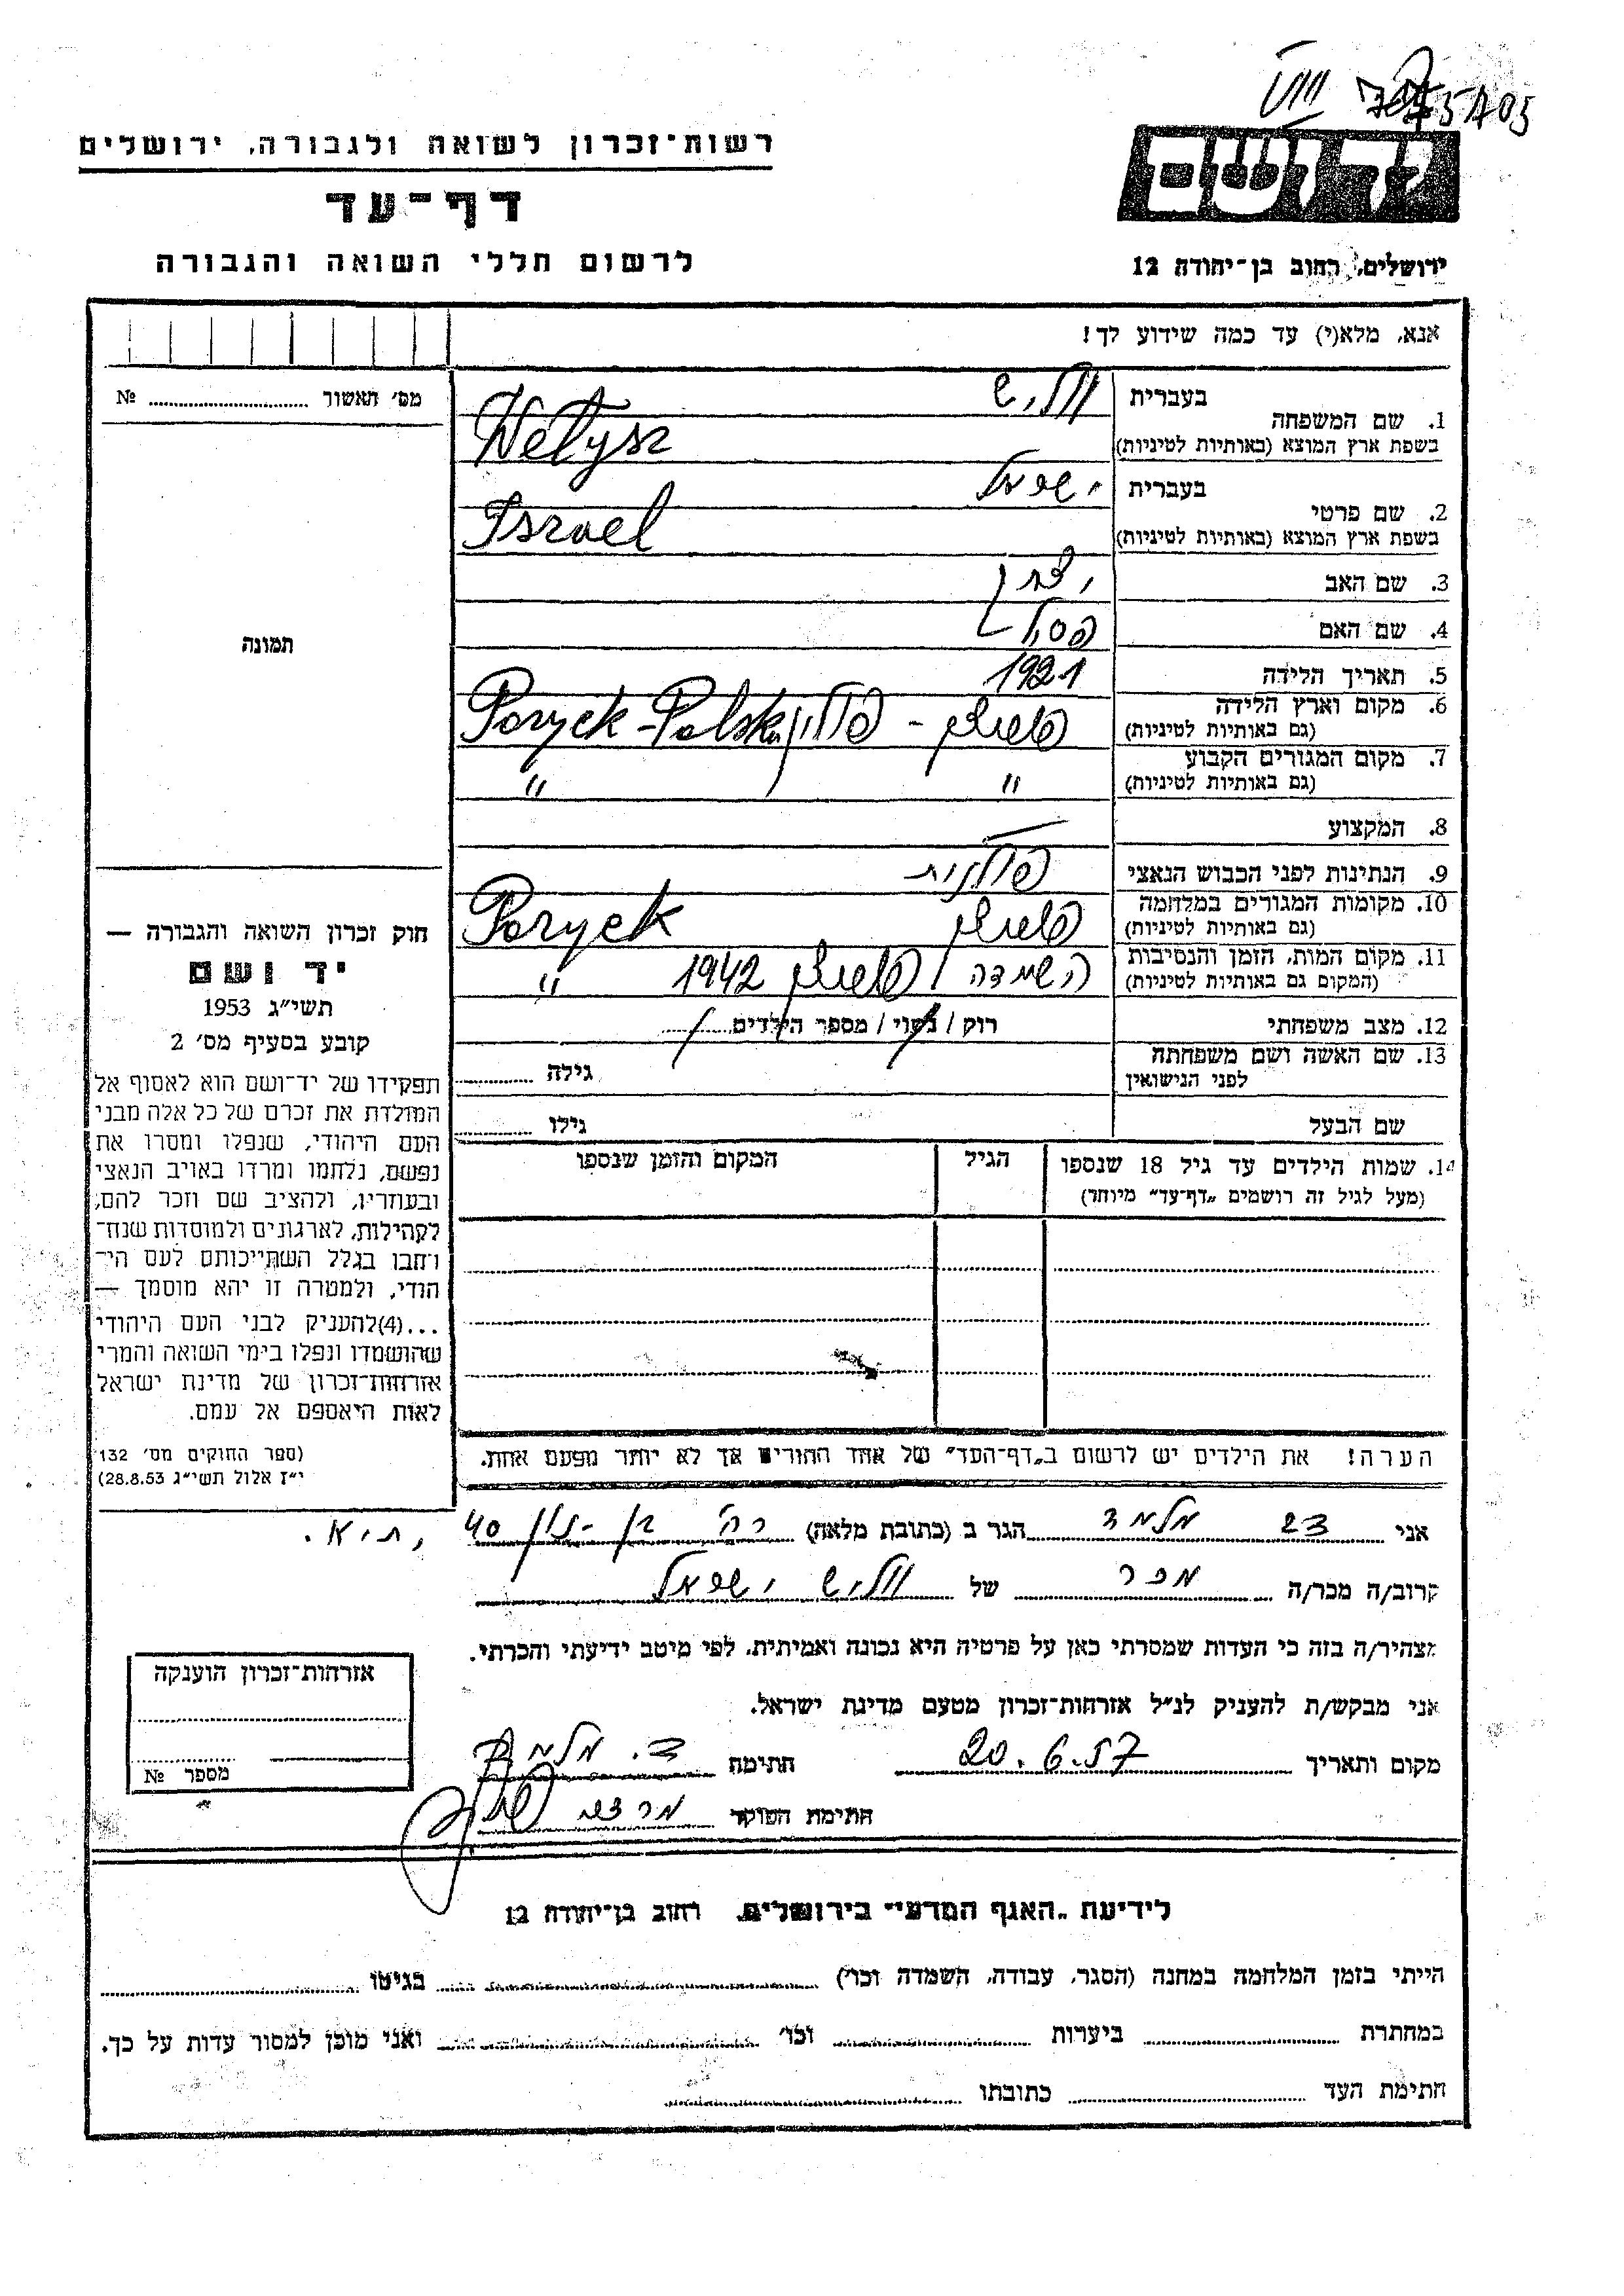 VIII
רשות־זכרון לשואה ולגבורה, ירושלים
דף־עד
לרשום חללי השואה והגבורה
יד ושם
ירושלים, רחוב בן־יהודה 12
אנא, מלא(י) עד כמה שידוע לך!
מס׳ תאשור № ........
1. שם המשפחה בעברית וליש
בשפת ארץ המוצא (באותיות לטיניות) Wełysz
2. שם פרטי בעברית ישראל
בשפת ארץ המוצא (באותיות לטיניות) Israel
3. שם האב
4. שם האם
5. תאריך הלידה 1921
6. מקום וארץ הלידה (גם באותיות לטיניות) פוריצק - פולין Poryck-Polska
7. מקום המגורים הקבוע (גם באותיות לטיניות) " "
8. המקצוע —
9. הנתינות לפני הכבוש הנאצי פולנית
10. מקומות המגורים במלחמה (גם באותיות לטיניות) פוריצק Poryck
11. מקום המות, הזמן והנסיבות (המקום גם באותיות לטיניות) השמדה / פוריצק 1942 "
12. מצב משפחתי רוק / נשוי / מספר הילדים
13. שם האשה ושם משפחתה לפני הנישואין גילה
שם הבעל גילו
14. שמות הילדים עד גיל 18 שנספו הגיל המקום והזמן שנספו
(מעל לגיל זה רושמים „דף־עד״ מיוחד)
הערה! את הילדים יש לרשום ב„דף־העד״ של אחד ההורים אך לא יותר מפעם אחת.
תמונה
חוק זכרון השואה והגבורה —
יד ושם
תשי״ג 1953
קובע בסעיף מס׳ 2
תפקידו של יד־ושם הוא לאסוף אל
המולדת את זכרם של כל אלה מבני
העם היהודי, שנפלו ומסרו את
נפשם, נלחמו ומרדו באויב הנאצי
ובעוזריו, ולהציב שם וזכר להם,
לקהילות, לארגונים ולמוסדות שנח־
רחבו בגלל השתייכותם לעם הי־
הודי, ולמטרה זו יהא מוסמך —
...(4)להעניק לבני העם היהודי
שהושמדו ונפלו בימי השואה והמרי
אזרחות־זכרון של מדינת ישראל
לאות היאספם אל עמם.
(ספר החוקים מס׳ 132
י״ז אלול תשי״ג 28.8.53)
אני מלמד הגר ב (כתובת מלאה) רח׳ 40, ת"א.
קרוב/ה מכר/ה מכר של ולישׁ ישראל
מצהיר/ה בזה כי העדות שמסרתי כאן על פרטיה היא נכונה ואמיתית, לפי מיטב ידיעתי והכרתי.
אני מבקש/ת להעניק לנ״ל אזרחות־זכרון מטעם מדינת ישראל.
מקום ותאריך 20.6.57 חתימה מלמד
חתימת הפוקד
אזרחות־זכרון הוענקה
מספר №
לידיעת „האגף המדעי״ בירושלים, רחוב בן־יהודה 12
הייתי בזמן המלחמה במחנה (הסגר, עבודה, השמדה וכו׳) בגיטו
במחתרת ביערות וכו׳ ואני מוכן למסור עדות על כך.
חתימת העד כתובתו